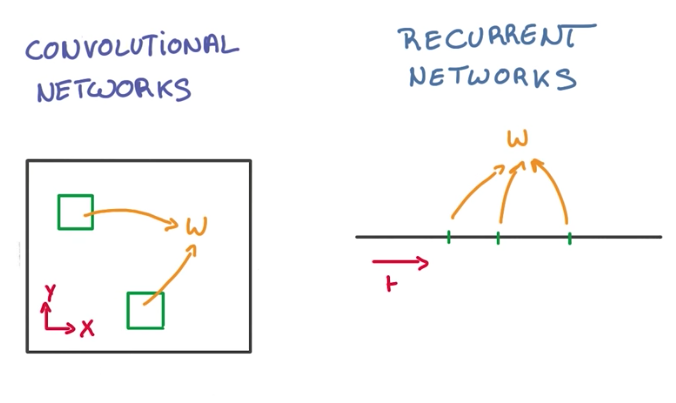 CONVOLUTIONAL
NETWORKS
RECURRENT
NETWORKS
W
W
Y
X
t